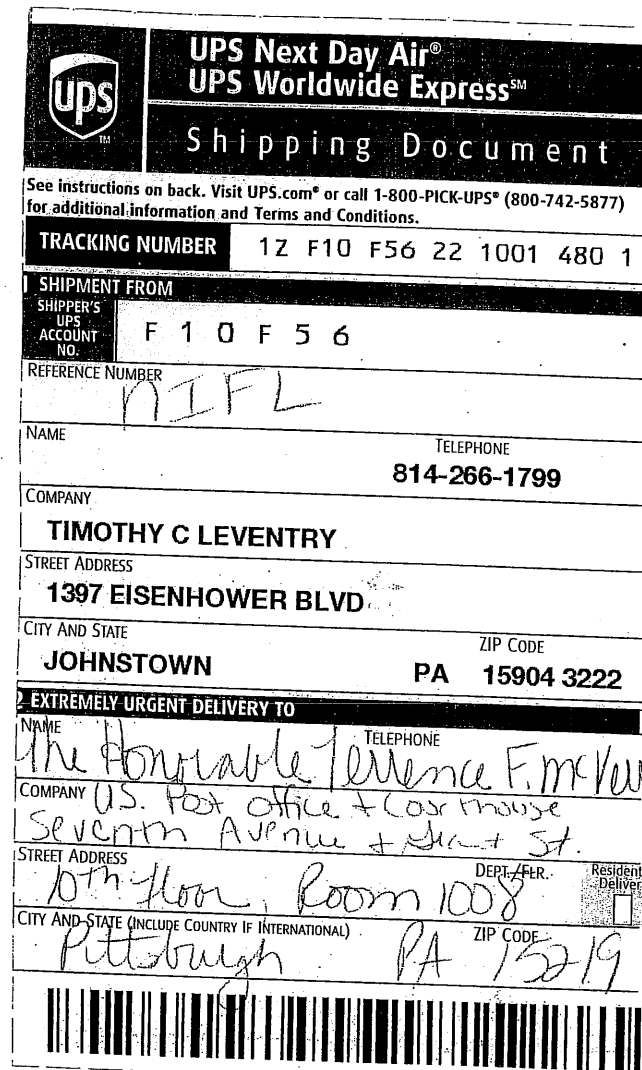 ups
TM
UPS Next Day Air®
UPS Worldwide Express℠
Shipping Document
See instructions on back. Visit UPS.com® or call 1-800-PICK-UPS® (800-742-5877)
for additional information and Terms and Conditions.
TRACKING NUMBER 1Z F10 F56 22 1001 480 1
SHIPMENT FROM
SHIPPER'S
UPS
ACCOUNT
NO.
F 1 0 F 5 6
REFERENCE NUMBER
NIFL
NAME TELEPHONE
814-266-1799
COMPANY
TIMOTHY C LEVENTRY
STREET ADDRESS
1397 EISENHOWER BLVD
CITY AND STATE ZIP CODE
JOHNSTOWN PA 15904 3222
2 EXTREMELY URGENT DELIVERY TO
NAME TELEPHONE
The Honorable Terrence F. McVer
COMPANY U.S. Post office + Courthouse
Seventh Avenue + Grant St.
STREET ADDRESS DEPT./FLR. Resident
Deliver
10th floor, Room 1008
CITY AND STATE (INCLUDE COUNTRY IF INTERNATIONAL) ZIP CODE
Pittsburgh PA 15219